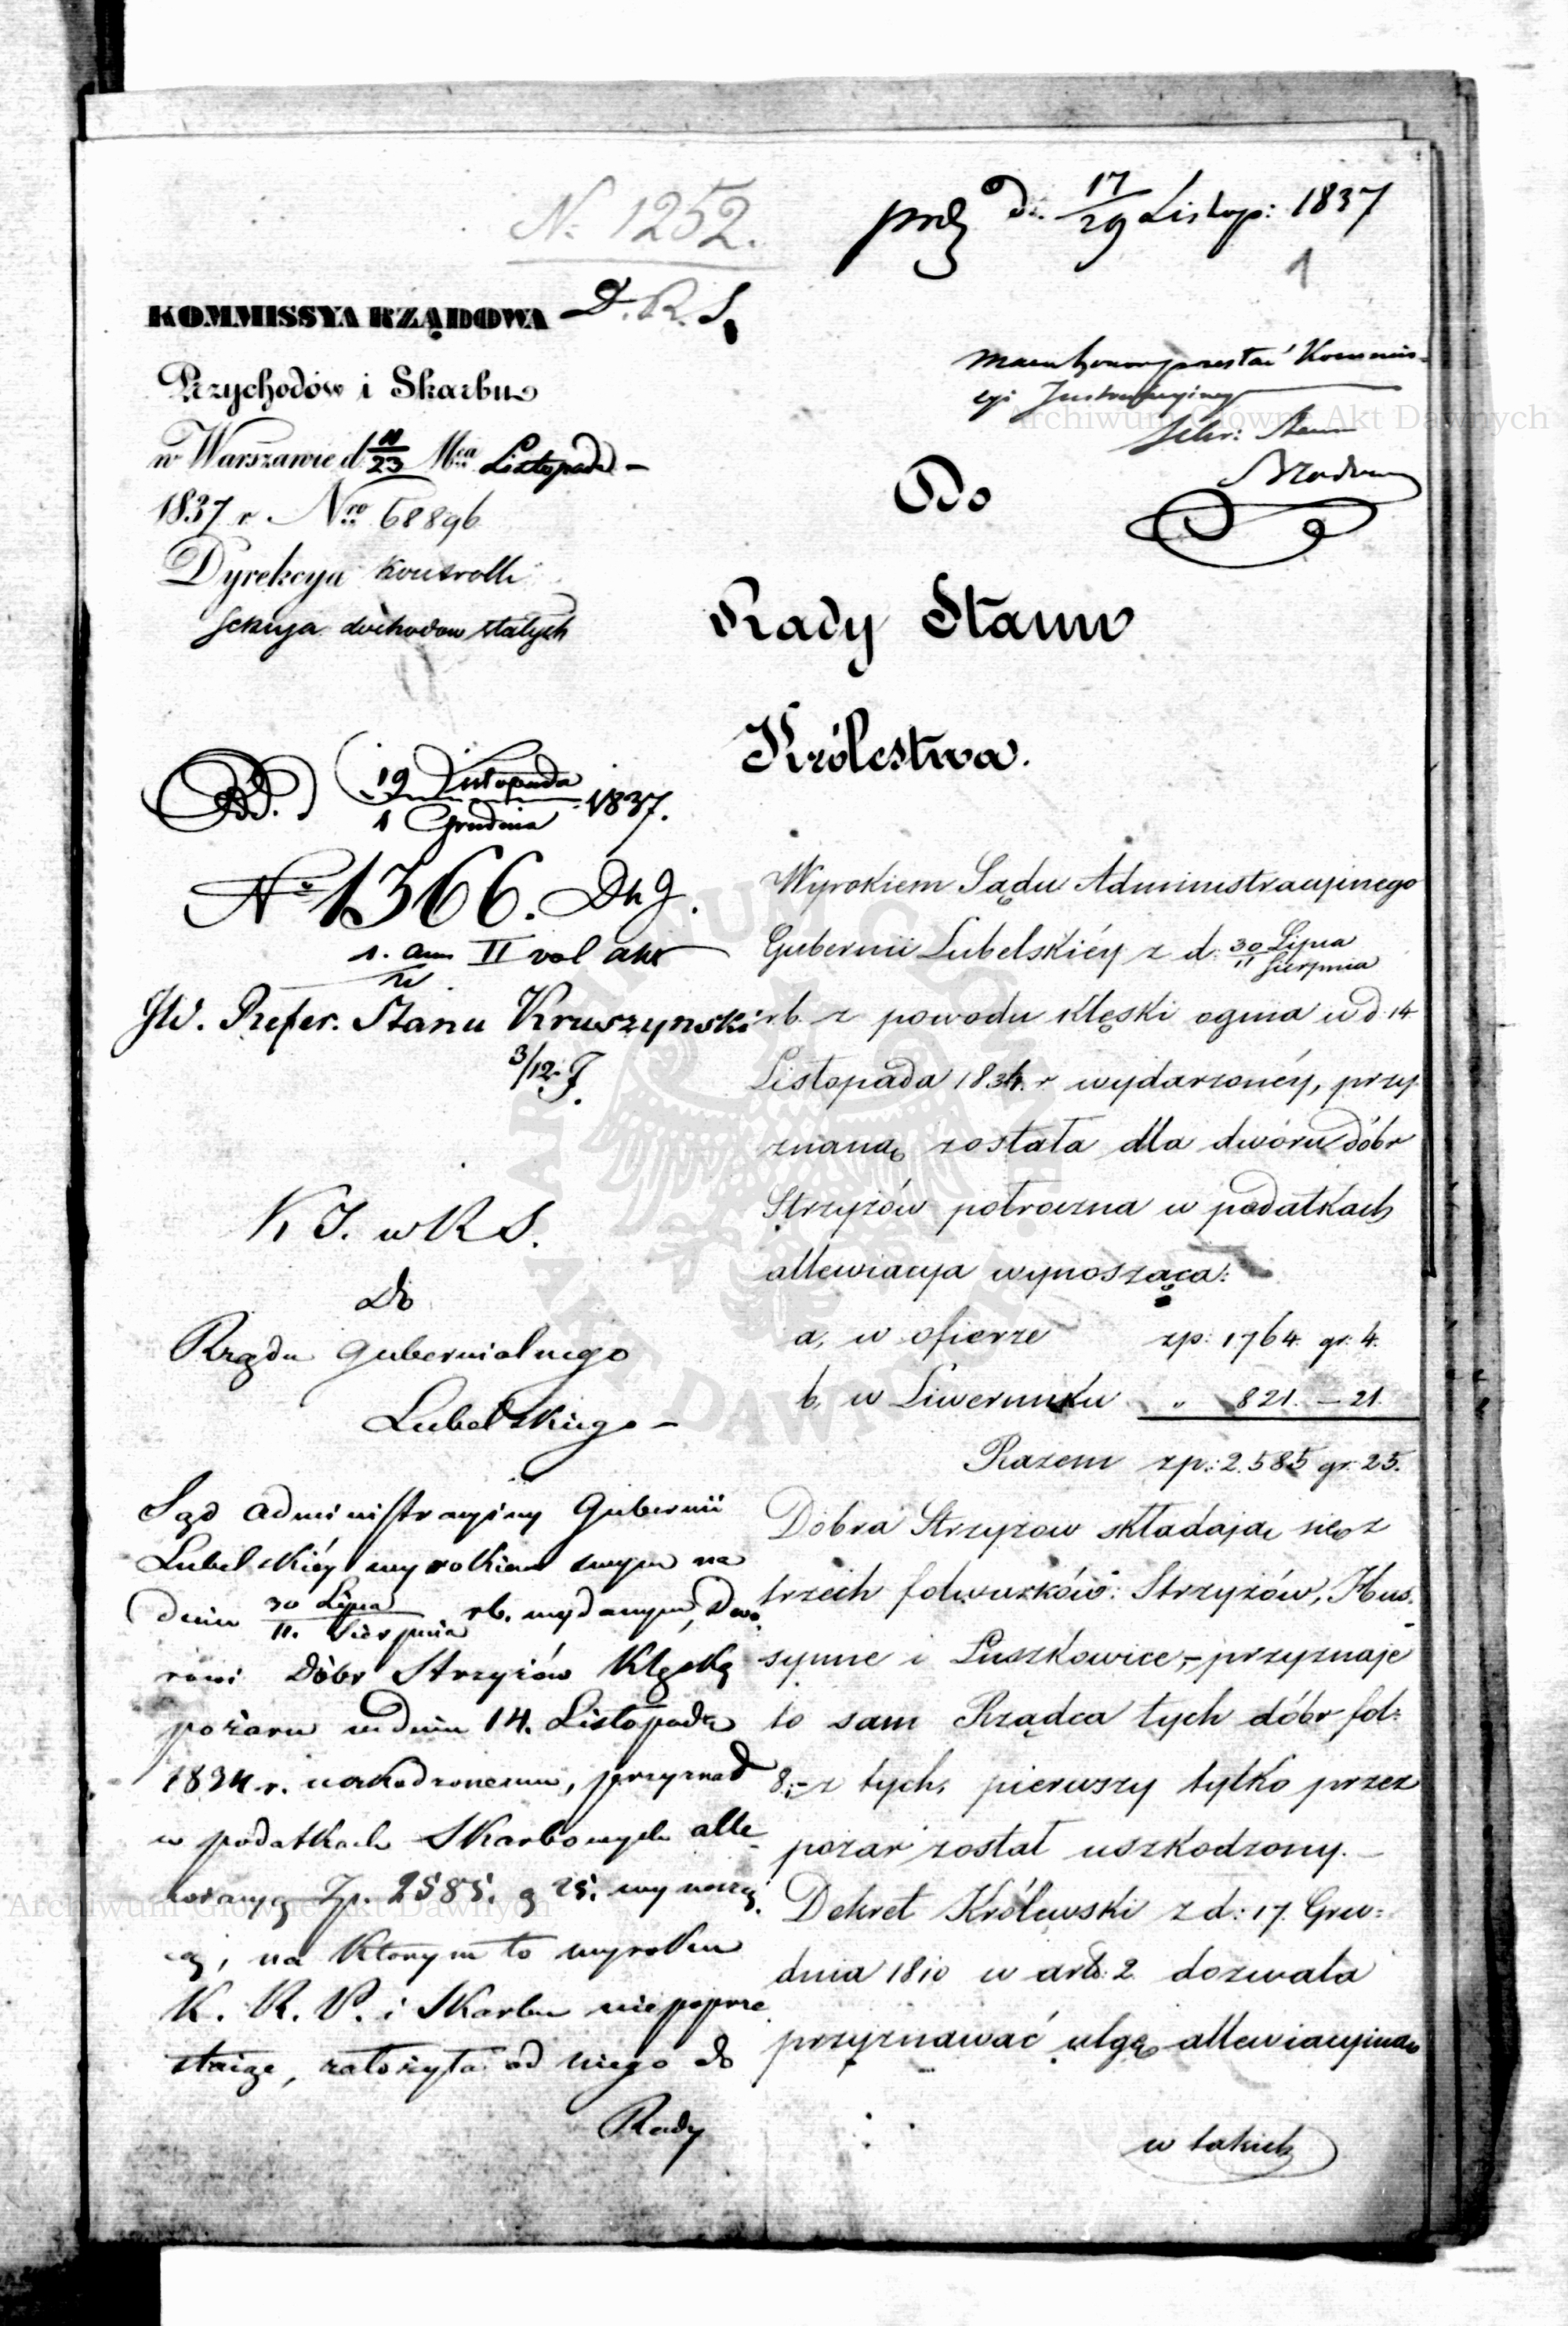 N. 1252.
prez d. 17/29 Listop: 1837
1
KOMMISSYA RZĄDOWA D. R. S.
Przychodów i Skarbu
w Warszawie d. 11/23 Mca Listopada
1837 r. Nro 68896
Dyrekcya Kontrolli
Sekcya dochodow stałych
mam honor przesłać Kommis-
syi Instrukcyjney
Sekr: Stanu
Do
Rady Stanu
Królestwa.
19 Listopada / 1 Grudnia 1837.
No 1366.
1. II vol akt
w
JW. Refer. Stanu Kruszynski
3/12.
K J. w R S.
Do
Rządu Gubernialnego
Lubelskiego –
Sąd administracyiny Gubernii
Lubelskiéy wyrokiem swym na
dniu 30 Lipca / 11. Sierpnia rb. wydanym, Dwo-
rowi Dóbr Strzyżów klęską
pożaru w dniu 14. Listopada
1834 r. uszkodzonemu, przyznał
w podatkach Skarbowych alle-
wiacyą Zp. 2585. g 25. wynoszą-
cą, na którym to wyroku
K. R. P. i Skarbu niepoprze
staiąc, założyła od niego do
Rady
Wyrokiem Sądu Administracyinego
Gubernii Lubelskiéy z d. 30 Lipca / 11 Sierpnia
r.b. z powodu klęski ognia w d. 14
Listopada 1834. r wydarzonéy, przy
znaną została dla dworu dóbr
Strzyżów półroczna w podatkach
allewiacya wynosząca:
a, w ofierze zp: 1764. gr. 4.
b, w Liwerunku „ 821. – 21.
Razem zp.: 2.585 gr. 25.
Dobra Strzyżow składają się z
trzech folwarków: Strzyżów, Hus-
synne i Łuszkowice, – przyznaje
to sam Rządca tych dóbr fol:
8; – z tych, pierwszy tylko przez
pożar został uszkodzony. –
Dekret Królewski z d: 17. Gru=
dnia 1810 w art: 2. dozwala
przyznawać ulgę allewiacyiną
w takich
Archiwum Główne Akt Dawnych
Archiwum Główne Akt Dawnych
ARCHIWUM GŁÓWNE AKT DAWNYCH